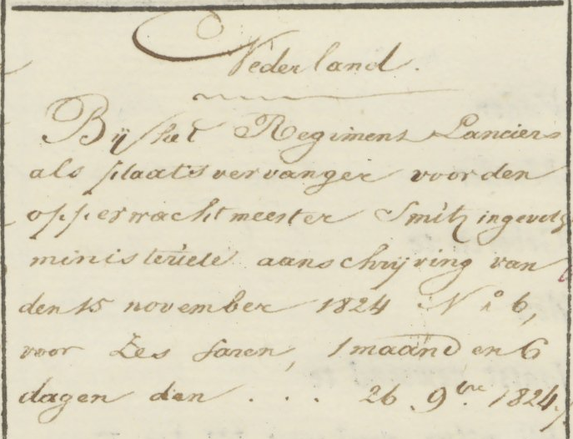 Nederland.
Bij het Regiment Lanciers
als plaatsvervanger voor den
opperwachtmeester Smitz ingevolg
ministeriele aanschrijving van
den 15 november 1824 No 6,
voor Zes Jaren, 1 maand en 6
dagen den . . . 26 9bre 1824,